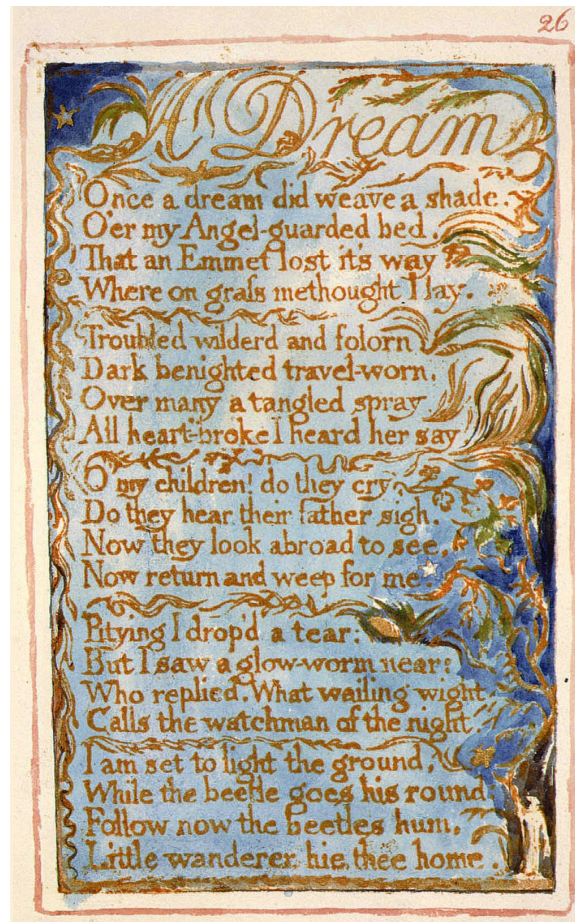 26
A Dream
Once a dream did weave a shade.
O'er my Angel-guarded bed.
That an Emmet lost it's way
Where on graſs methought I lay.
Troubled wilderd and folorn
Dark benighted travel-worn.
Over many a tangled spray
All heart-broke I heard her say.
O my children! do they cry.
Do they hear their father sigh.
Now they look abroad to see,
Now return and weep for me.
Pitying I drop'd a tear:
But I saw a glow-worm near:
Who replied. What wailing wight
Calls the watchman of the night.
I am set to light the ground,
While the beetle goes his round:
Follow now the beetles hum,
Little wanderer hie thee home.